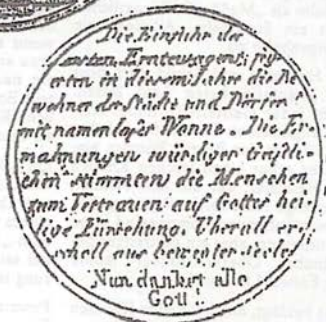 Die Einfuhr der
ersten Erntewagen feÿ
erten in diesem Jahre die Be
wohner der Städte und Dörfer
mit namenloser Wonne. Die Er
mahnungen würdiger Geistli
chen stimmten die Menschen
zum Vertrauen auf Gottes hei
lige Fürsehung. Überall er
scholl aus bewegter Seele
Nun danket alle
Gott